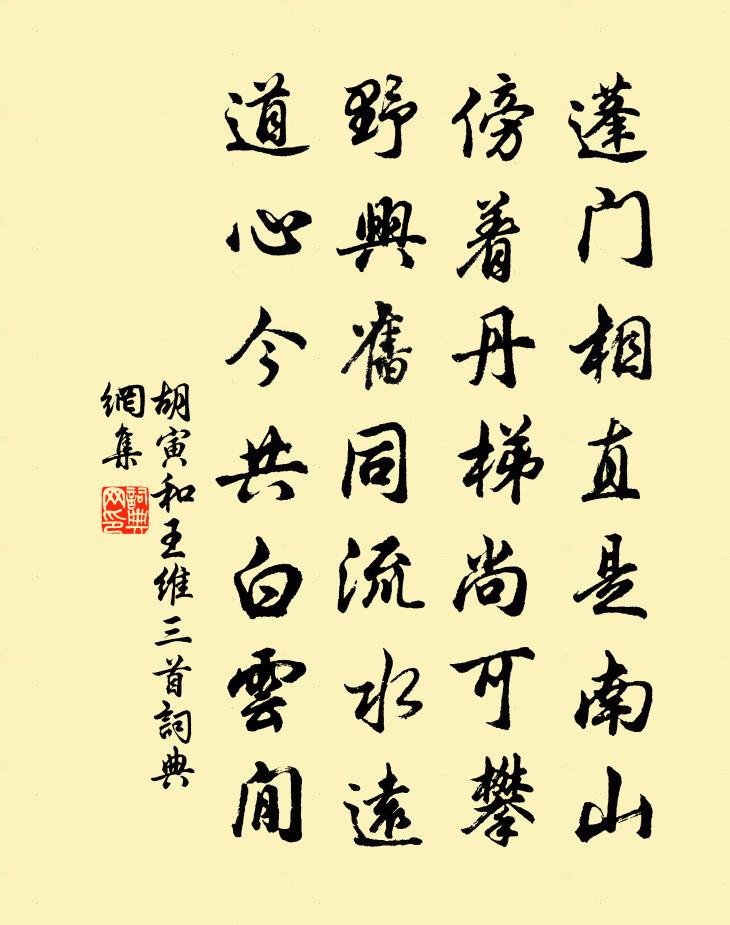 蓬門相直是南山
傍着丹梯尚可攀
野興舊同流水遠
道心今共白雲閒
胡寅和王維三首詞典
網集
詞典網印